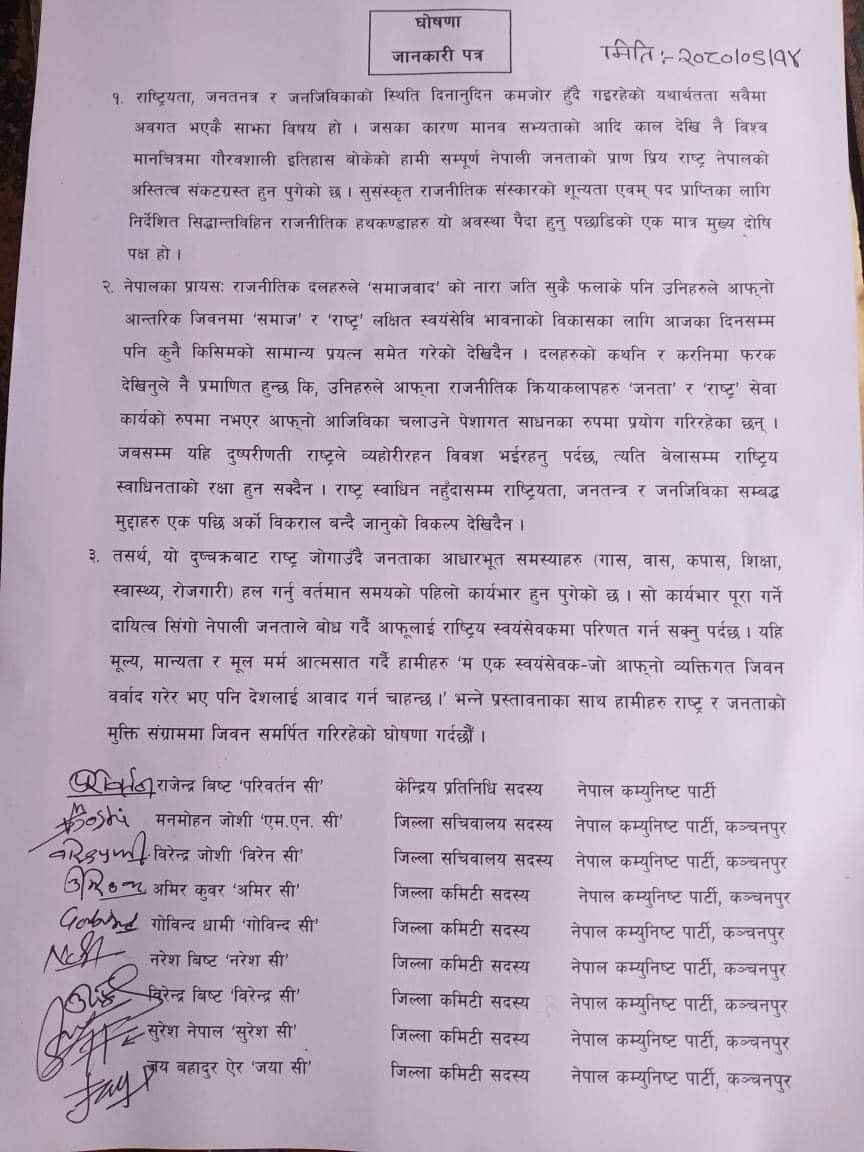 घोषणा
जानकारी पत्र
मिति :- २०८०/०८/१४
१. राष्ट्रियता, जनतन्त्र र जनजिविकाको स्थिति दिनानुदिन कमजोर हुँदै गइरहेको यथार्थतता सवैमा
अवगत भएकै साझा विषय हो । जसका कारण मानव सभ्यताको आदि काल देखि नै विश्व
मानचित्रमा गौरवशाली इतिहास बोकेको हामी सम्पूर्ण नेपाली जनताको प्राण प्रिय राष्ट्र नेपालको
अस्तित्व संकटग्रस्त हुन पुगेको छ । सुसंस्कृत राजनीतिक संस्कारको शून्यता एवम् पद प्राप्तिका लागि
निर्देशित सिद्धान्तविहिन राजनीतिक हथकण्डाहरु यो अवस्था पैदा हुनु पछाडिको एक मात्र मुख्य दोषि
पक्ष हो ।
२. नेपालका प्रायसः राजनीतिक दलहरुले ‘समाजवाद’ को नारा जति सुकै फलाके पनि उनिहरुले आफ्नो
आन्तरिक जिवनमा ‘समाज’ र ‘राष्ट्र’ लक्षित स्वयंसेवि भावनाको विकासका लागि आजका दिनसम्म
पनि कुनै किसिमको सामान्य प्रयत्न समेत गरेको देखिदैन । दलहरुको कथनि र करनिमा फरक
देखिनुले नै प्रमाणित हुन्छ कि, उनिहरुले आफ्ना राजनीतिक क्रियाकलापहरु ‘जनता’ र ‘राष्ट्र’ सेवा
कार्यको रुपमा नभएर आफ्नो आजिविका चलाउने पेशागत साधनका रुपमा प्रयोग गरिरहेका छन् ।
जबसम्म यहि दुष्परीणती राष्ट्रले व्यहोरीरहन विवश भईरहनु पर्दछ, त्यति बेलासम्म राष्ट्रिय
स्वाधिनताको रक्षा हुन सक्दैन । राष्ट्र स्वाधिन नहुँदासम्म राष्ट्रियता, जनतन्त्र र जनजिविका सम्बद्ध
मुद्दाहरु एक पछि अर्को विकराल बन्दै जानुको विकल्प देखिदैन ।
३. तसर्थ, यो दुष्चक्रबाट राष्ट्र जोगाउँदै जनताका आधारभूत समस्याहरु (गास, वास, कपास, शिक्षा,
स्वास्थ्य, रोजगारी) हल गर्नु वर्तमान समयको पहिलो कार्यभार हुन पुगेको छ । सो कार्यभार पूरा गर्ने
दायित्व सिंगो नेपाली जनताले बोध गर्दै आफूलाई राष्ट्रिय स्वयंसेवकमा परिणत गर्न सक्नु पर्दछ । यहि
मूल्य, मान्यता र मूल मर्म आत्मसात गर्दै हामीहरु ‘म एक स्वयंसेवक-जो आफ्नो व्यक्तिगत जिवन
वर्वाद गरेर भए पनि देशलाई आवाद गर्न चाहन्छ ।’ भन्ने प्रस्तावनाका साथ हामीहरु राष्ट्र र जनताको
मुक्ति संग्राममा जिवन समर्पित गरिरहेको घोषणा गर्दछौं ।
परिवर्तन राजेन्द्र बिष्ट ‘परिवर्तन सी’ केन्द्रिय प्रतिनिधि सदस्य नेपाल कम्युनिष्ट पार्टी
Joshi मनमोहन जोशी ‘एम.एन. सी’ जिल्ला सचिवालय सदस्य नेपाल कम्युनिष्ट पार्टी, कञ्चनपुर
विरेन्द्र जोशी ‘विरेन सी’ जिल्ला सचिवालय सदस्य नेपाल कम्युनिष्ट पार्टी, कञ्चनपुर
अमिर कुवर ‘अमिर सी’ जिल्ला कमिटी सदस्य नेपाल कम्युनिष्ट पार्टी, कञ्चनपुर
गोविन्द धामी ‘गोविन्द सी’ जिल्ला कमिटी सदस्य नेपाल कम्युनिष्ट पार्टी, कञ्चनपुर
नरेश बिष्ट ‘नरेश सी’ जिल्ला कमिटी सदस्य नेपाल कम्युनिष्ट पार्टी, कञ्चनपुर
विरेन्द्र बिष्ट ‘विरेन्द्र सी’ जिल्ला कमिटी सदस्य नेपाल कम्युनिष्ट पार्टी, कञ्चनपुर
सुरेश नेपाल ‘सुरेश सी’ जिल्ला कमिटी सदस्य नेपाल कम्युनिष्ट पार्टी, कञ्चनपुर
Jay जय बहादुर ऐर ‘जया सी’ जिल्ला कमिटी सदस्य नेपाल कम्युनिष्ट पार्टी, कञ्चनपुर